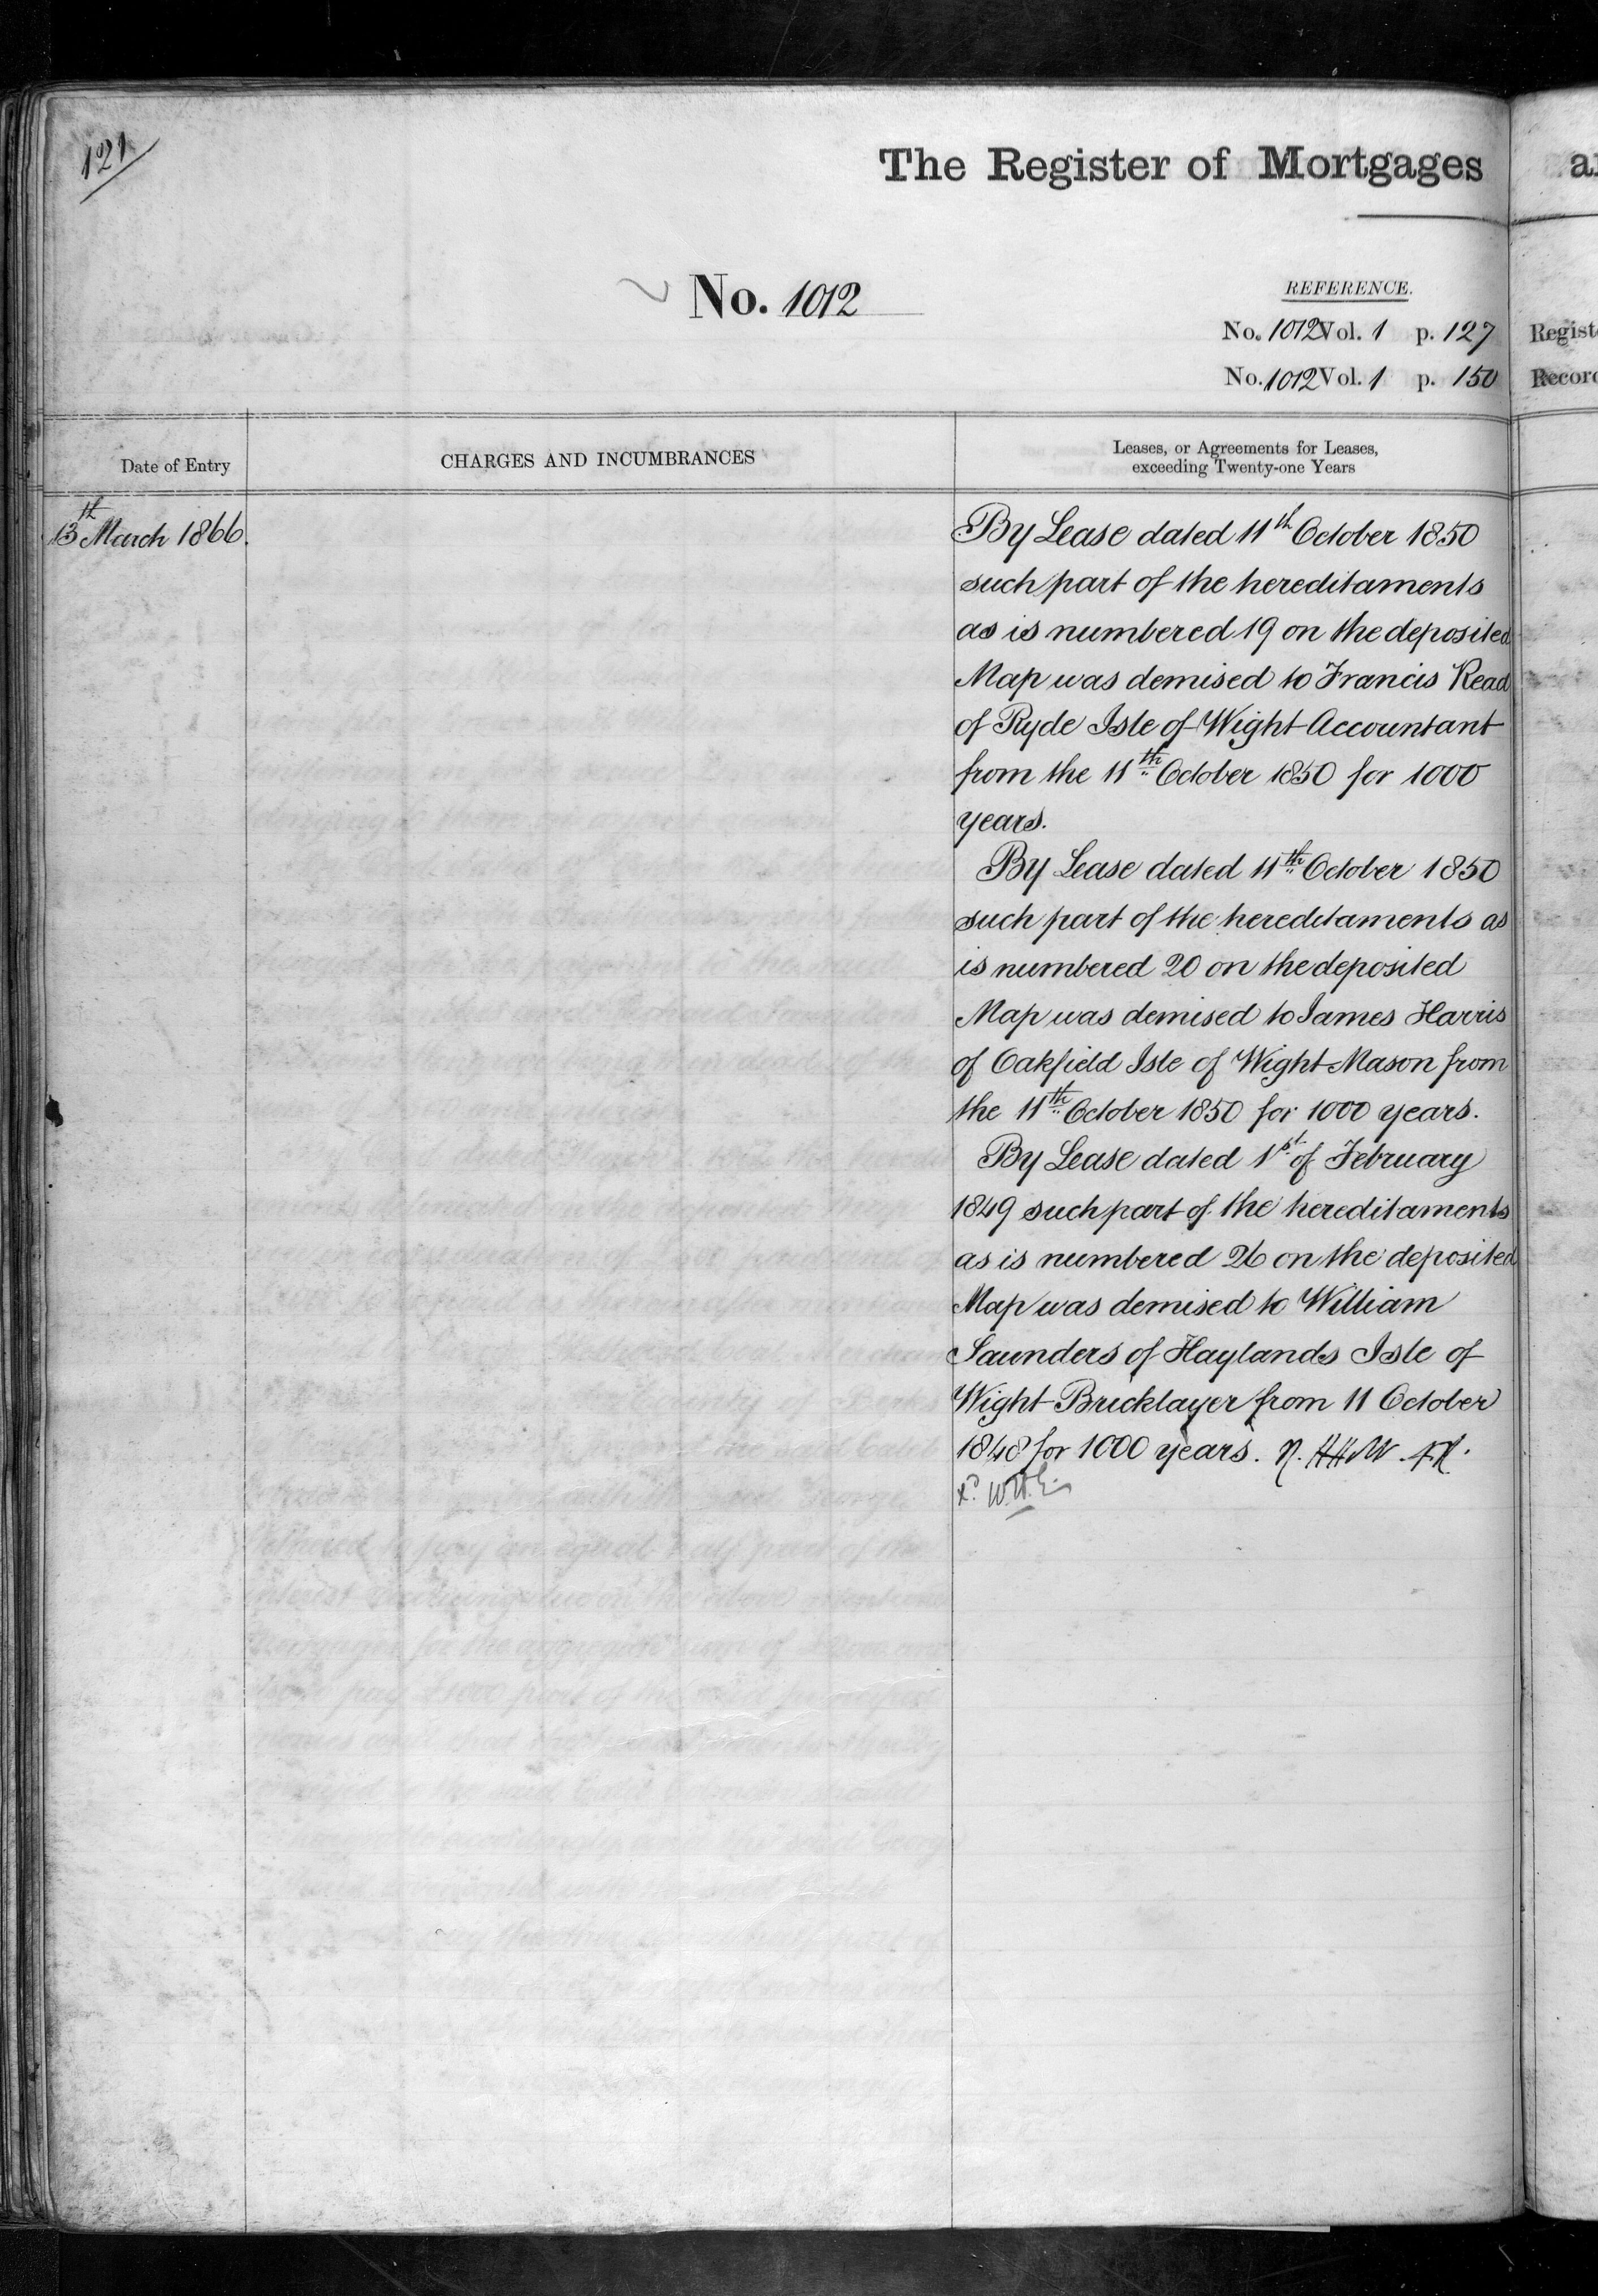 121
The Register of Mortgages
No. 1012
REFERENCE.
No. 1012 Vol. 1 p. 127
No. 1012 Vol. 1 p. 150
Date of Entry
CHARGES AND INCUMBRANCES
Leases, or Agreements for Leases,
exceeding Twenty-one Years
13th March 1866.
By Lease dated 11th October 1850
such part of the hereditaments
as is numbered 19 on the deposited
Map was demised to Francis Read
of Ryde Isle of Wight Accountant
from the 11th October 1850 for 1000
years.
By Lease dated 11th October 1850
such part of the hereditaments as
is numbered 20 on the deposited
Map was demised to James Harris
of Oakfield Isle of Wight Mason from
the 11th October 1850 for 1000 years.
By Lease dated 1st of February
1849 such part of the hereditaments
as is numbered 26 on the deposited
Map was demised to William
Saunders of Haylands Isle of
Wight Bricklayer from 11 October
1848 for 1000 years.